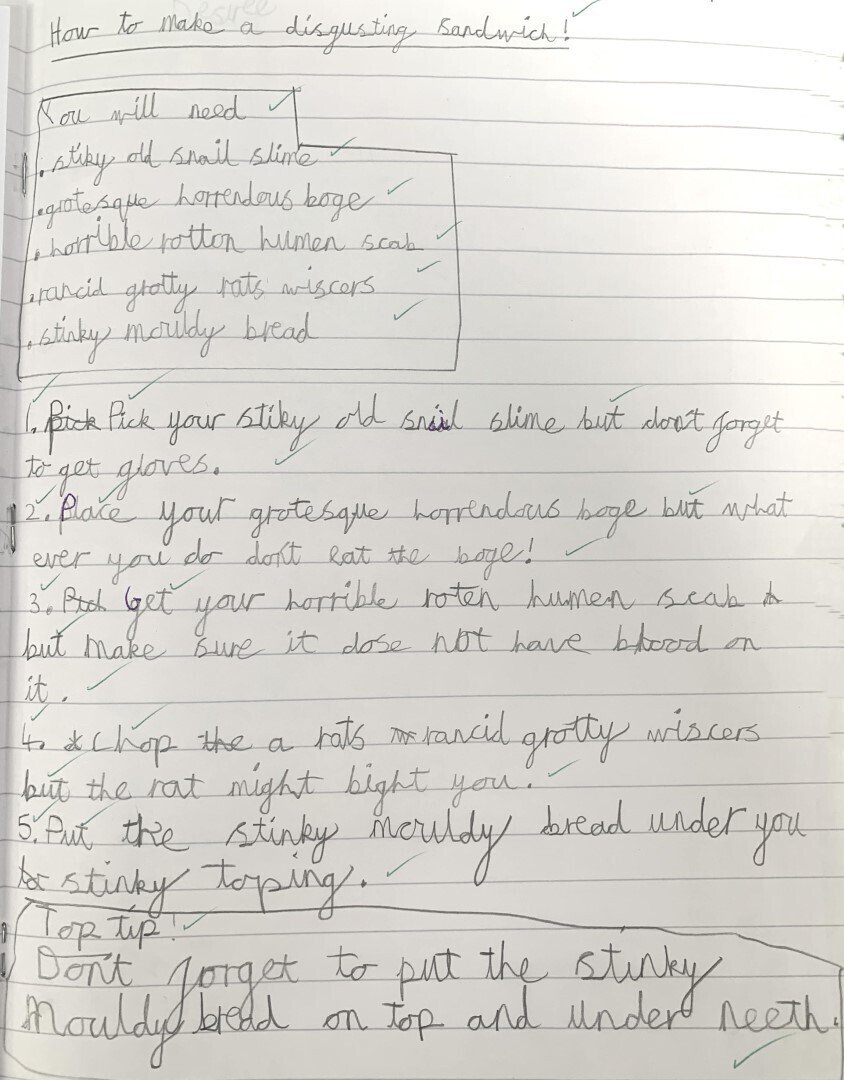 How to make a disgusting sandwich!
You will need
. stiky old snail slime
. grotesque horrendous boge
. horrible rotton humen scab
. rancid grotty rats wiscers
. stinky mouldy bread
1. Pick Pick your stiky old snail slime but don't forget
to get gloves.
2. Place your grotesque horrendous boge but what
ever you do don't eat the boge!
3. Get your horrible roten humen scab
but make sure it dose not have blood on
it.
4. Chop the a rats rancid grotty wiscers
but the rat might bight you.
5. Put the stinky mouldy bread under you
stinky toping.
Top tip!
Don't forget to put the stinky
Mouldy bread on top and under neeth.